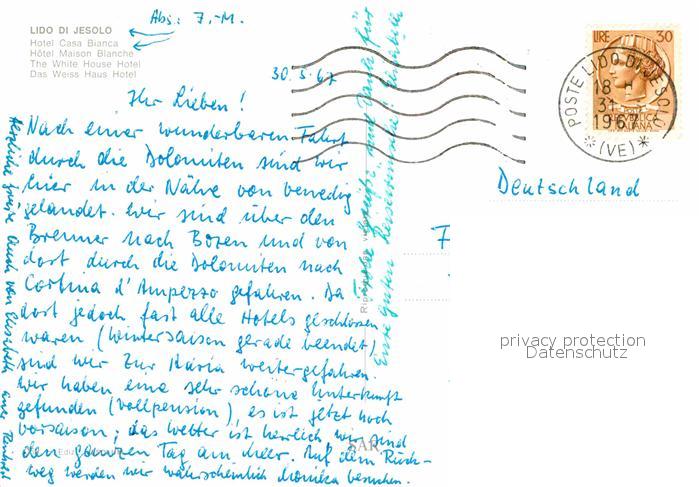 Abs: 7,-M.
LIDO DI JESOLO
Hotel Casa Bianca
Hôtel Maison Blanche
The White House Hotel
Das Weiss Haus Hotel
30.5.67
Ihr Lieben!
Nach einer wunderbaren Fahrt
durch die Dolomiten sind wir
hier in der Nähe von Venedig
gelandet. Wir sind über den
Brenner nach Bozen und von
dort durch die Dolomiten nach
Cortina d'Ampezzo gefahren. Da
dort jedoch fast alle Hotels geschlossen
waren (Wintersaison gerade beendet)
sind wir zur Adria weitergefahren.
Wir haben eine sehr schöne Unterkunft
gefunden (Vollpension), es ist jetzt noch
Vorsaison; das Wetter ist herrlich, wir sind
den ganzen Tag am Meer. Auf dem Rück-
weg werden wir wahrscheinlich Monika besuchen.
Herzliche Grüße auch von Elisabeth euer Reinhold
LIRE 30
POSTE LIDO DI JESOLO
18-H
31
1967
(VE)
Deutschland
privacy protection
Datenschutz